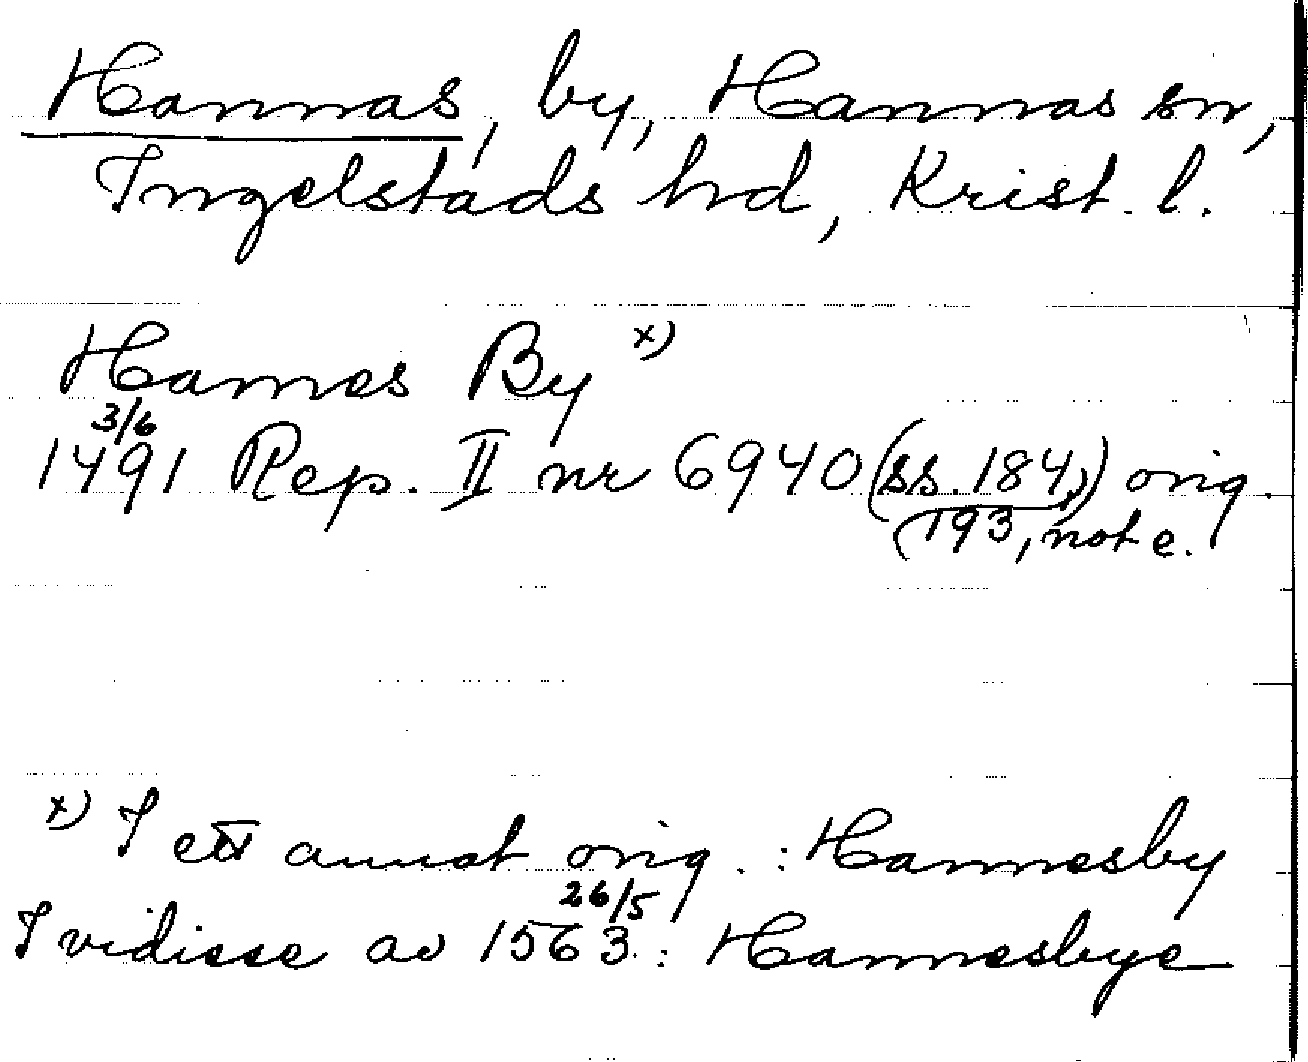 Hannas, by, Hannas sn,
Ingelstads hd, Krist. l.
Hannes By x)
3/6
1491 Rep. II nr 6940 (ss. 184,) orig.
(193, not e.
x) I ett annat orig. : Hannesby
26/5
I vidisse av 1563 : Hannesbye